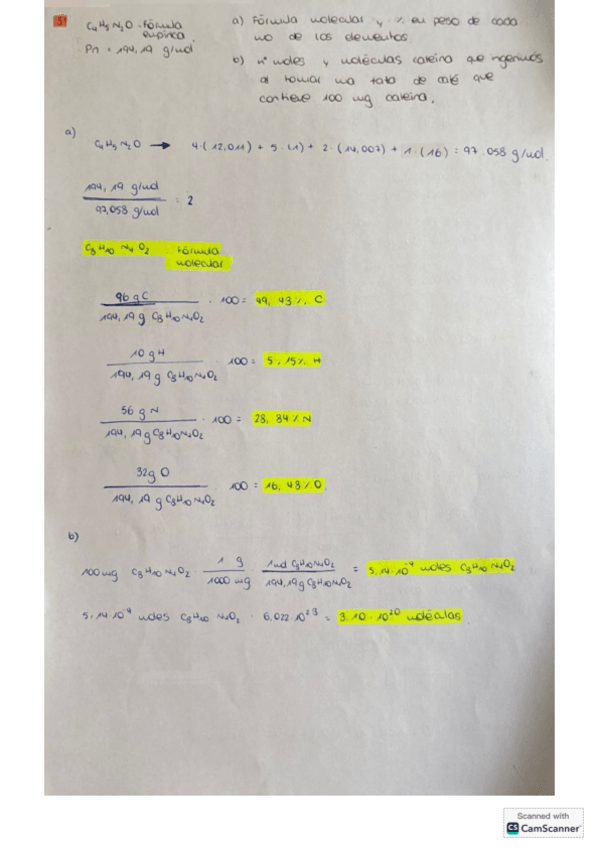 5) C₄H₅N₂O - Fórmula empírica
Pm = 194,19 g/mol
a) Fórmula molecular y % en peso de cada uno de los elementos.
b) nº moles y moléculas cafeína que ingerimos al tomar una taza de café que contiene 100 mg cafeína.
a)
C₄H₅N₂O → 4·(12,011) + 5·(1) + 2·(14,007) + 1·(16) = 97.058 g/mol.
194,19 g/mol / 97,058 g/mol = 2
C₈H₁₀N₄O₂ Fórmula molecular
96 g C / 194,19 g C₈H₁₀N₄O₂ · 100 = 49,43% C
10 g H / 194,19 g C₈H₁₀N₄O₂ · 100 = 5,15% H
56 g N / 194,19 g C₈H₁₀N₄O₂ · 100 = 28,84% N
32 g O / 194,19 g C₈H₁₀N₄O₂ · 100 = 16,48% O
b)
100 mg C₈H₁₀N₄O₂ · 1 g / 1000 mg · 1 mol C₈H₁₀N₄O₂ / 194,19 g C₈H₁₀N₄O₂ = 5,14·10⁻⁴ moles C₈H₁₀N₄O₂
5,14·10⁻⁴ moles C₈H₁₀N₄O₂ · 6,022·10²³ = 3.10·10²⁰ moléculas.
Scanned with
CS CamScanner